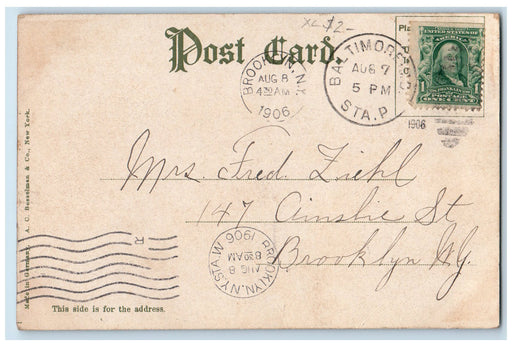 XL $2-
Post Card.
UNITED STATES OF AMERICA
1 1
POSTAGE
ONE CENT
BROOKLYN, N.Y.
AUG 8
4 30 AM
1906
BALTIMORE, MD.
AUG 7
5 PM
STA. P.
1906
Mrs. Fred. Ziehl
147 Ainslie St
Brooklyn N.Y.
BROOKLYN, N.Y. STA. W. 1906
AUG 8
8 30 AM
R
This side is for the address.
Made in Germany. A. C. Bosselman & Co., New York.